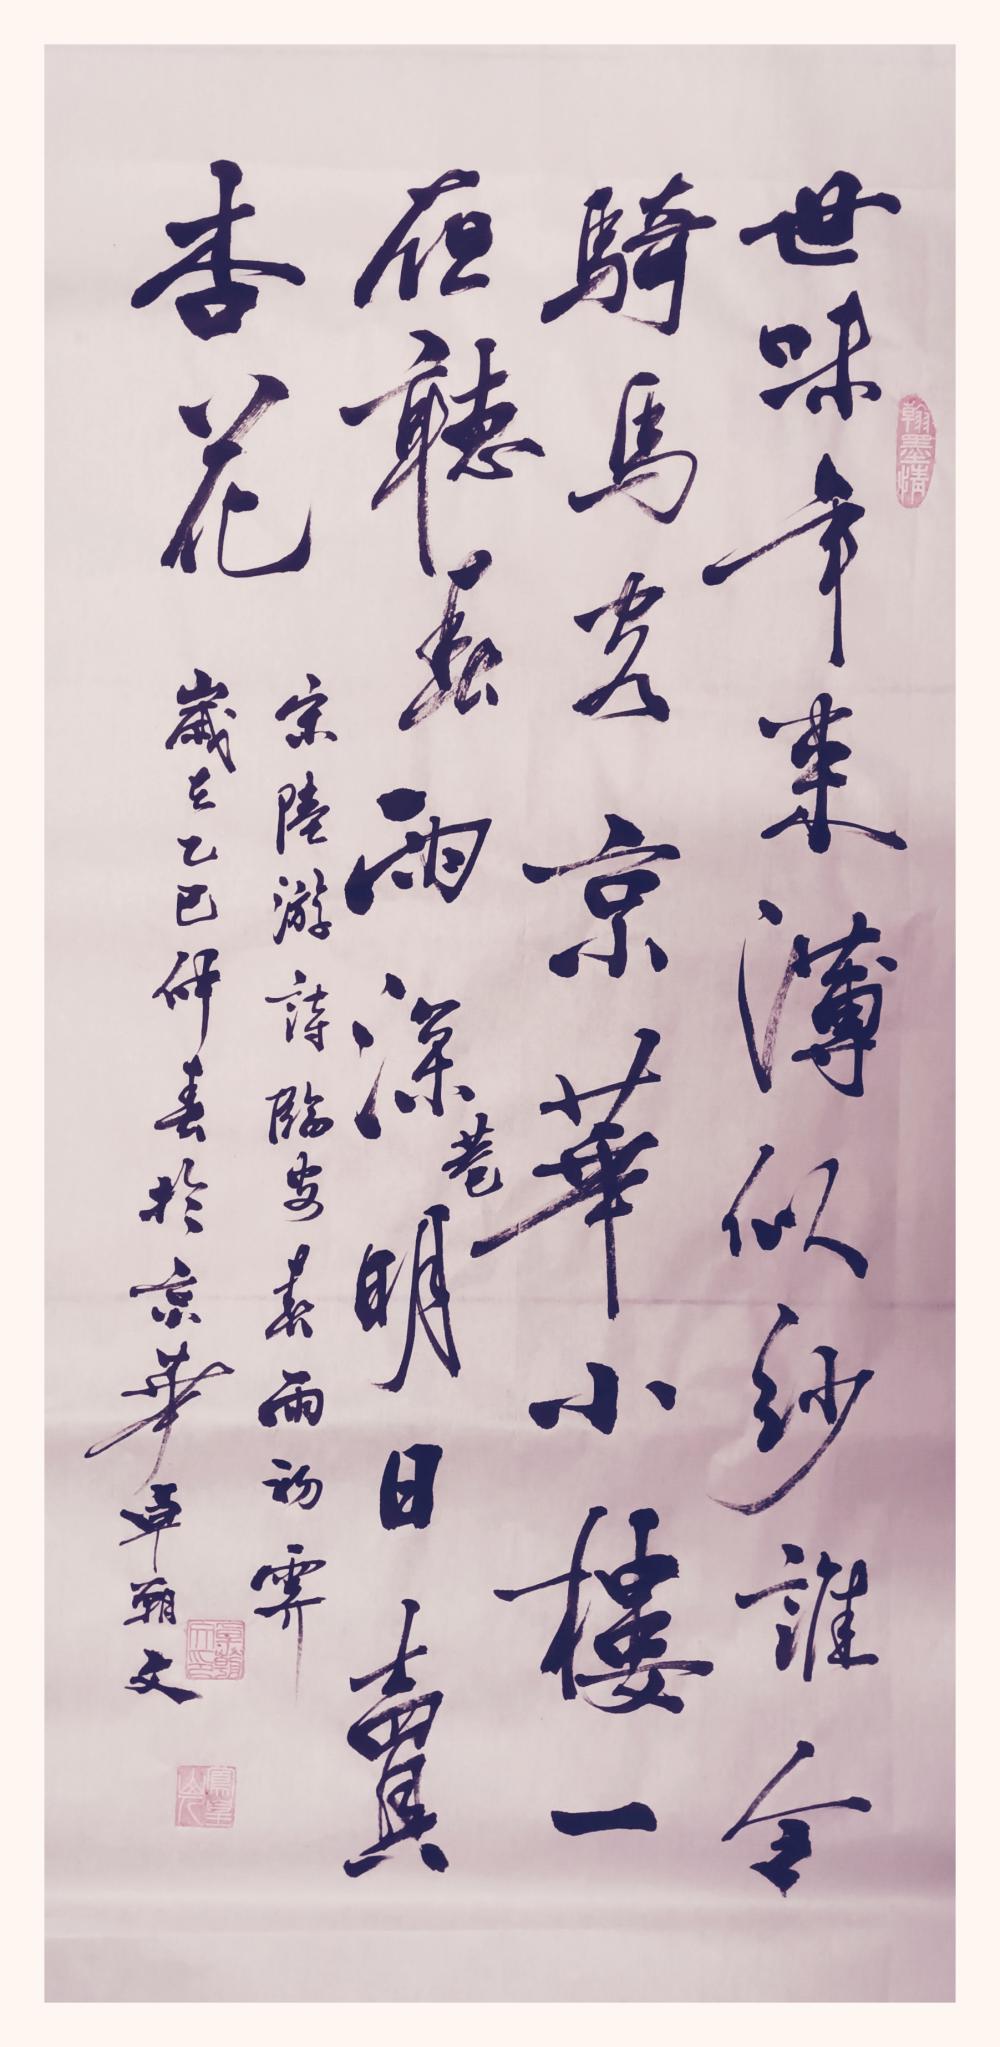 世味年来薄似紗誰令
騎馬客京華小樓一
夜聽春雨深巷明日賣
杏花
宋陸游詩臨安春雨初霽
歲在乙巳仲春於京華卓翰文
翰墨情
卓翰文印